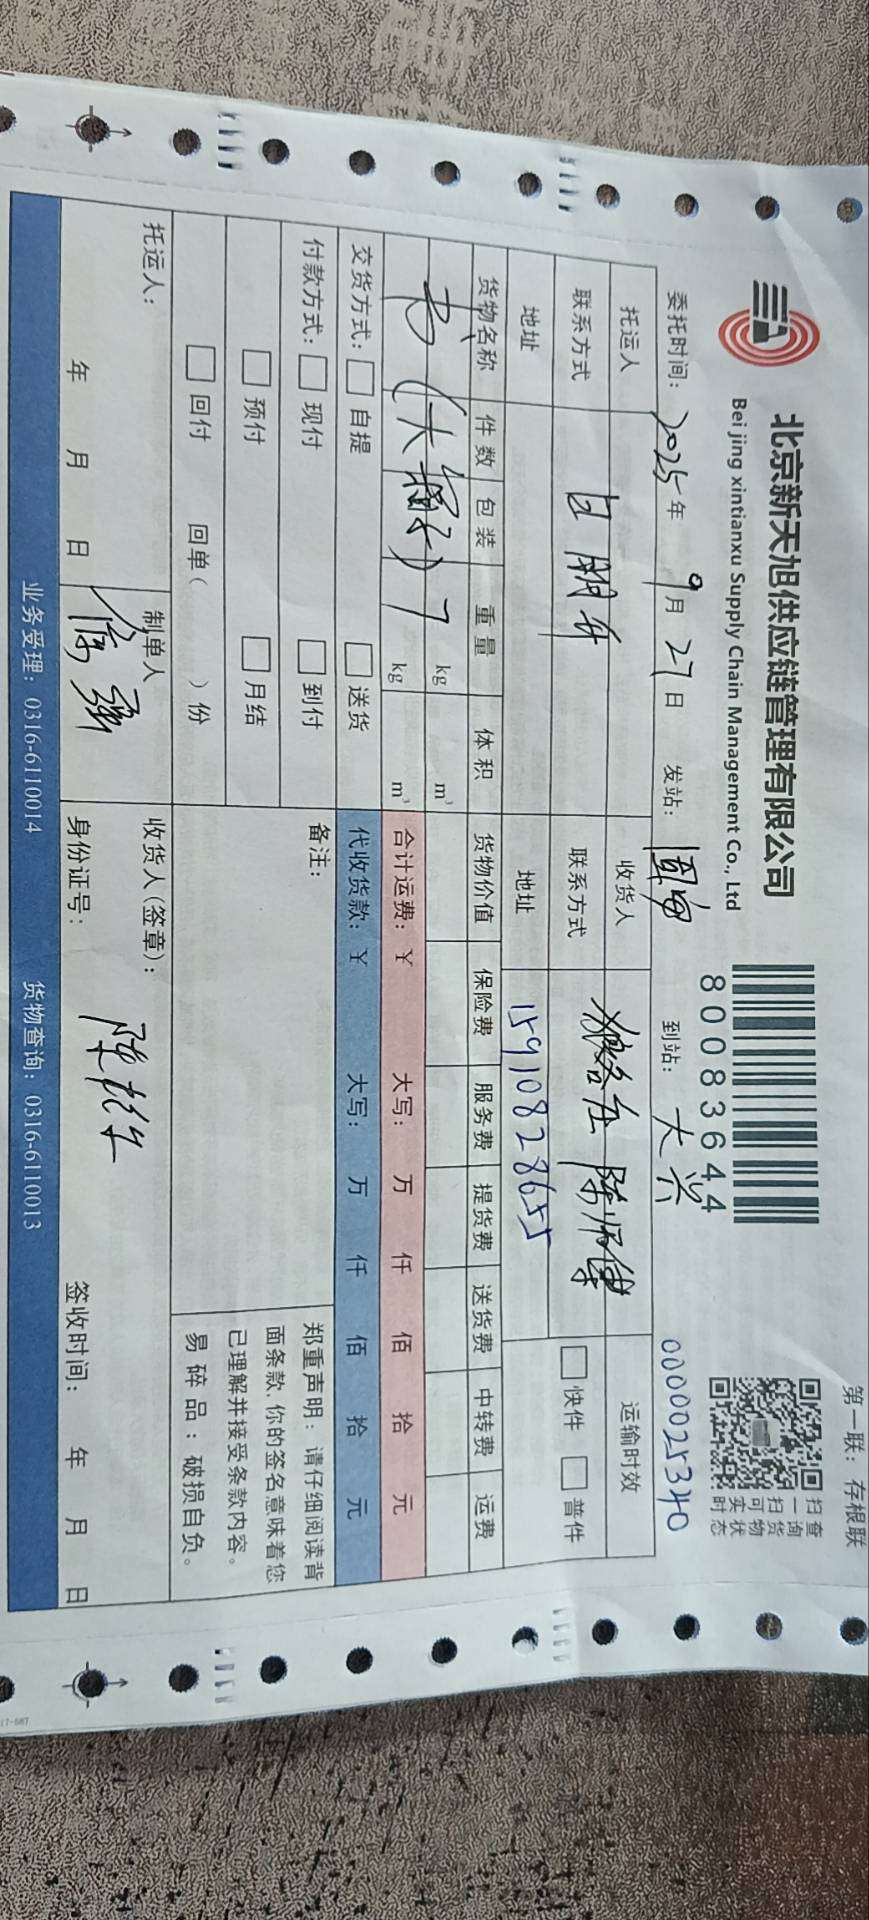 第一联：存根联
北京新天旭供应链管理有限公司
Bei jing xintianxu Supply Chain Management Co., Ltd
80083644
扫一扫可实时
查询货物状态
委托时间：2025年9月27日 发站：固安 到站：大兴 0000025340
托运人 收货人 运输时效
联系方式 联系方式 陈师傅 快件 普件
地址 地址 15910828655
货物名称 件数 包装 重量 体积 货物价值 保险费 服务费 提货费 送货费 中转费 运费
kg m³
kg m³ 合计运费：￥ 大写： 万 仟 佰 拾 元
交货方式： 自提 送货 代收货款：￥ 大写： 万 仟 佰 拾 元
付款方式： 现付 到付 备注：
预付 月结
回付 回单（ ）份
郑重声明：请仔细阅读背
面条款，你的签名意味着您
已理解并接受条款内容。
易碎品：破损自负。
托运人： 制单人 收货人（签章）：
年 月 日 身份证号： 签收时间： 年 月 日
业务受理：0316-6110014 货物查询：0316-6110013